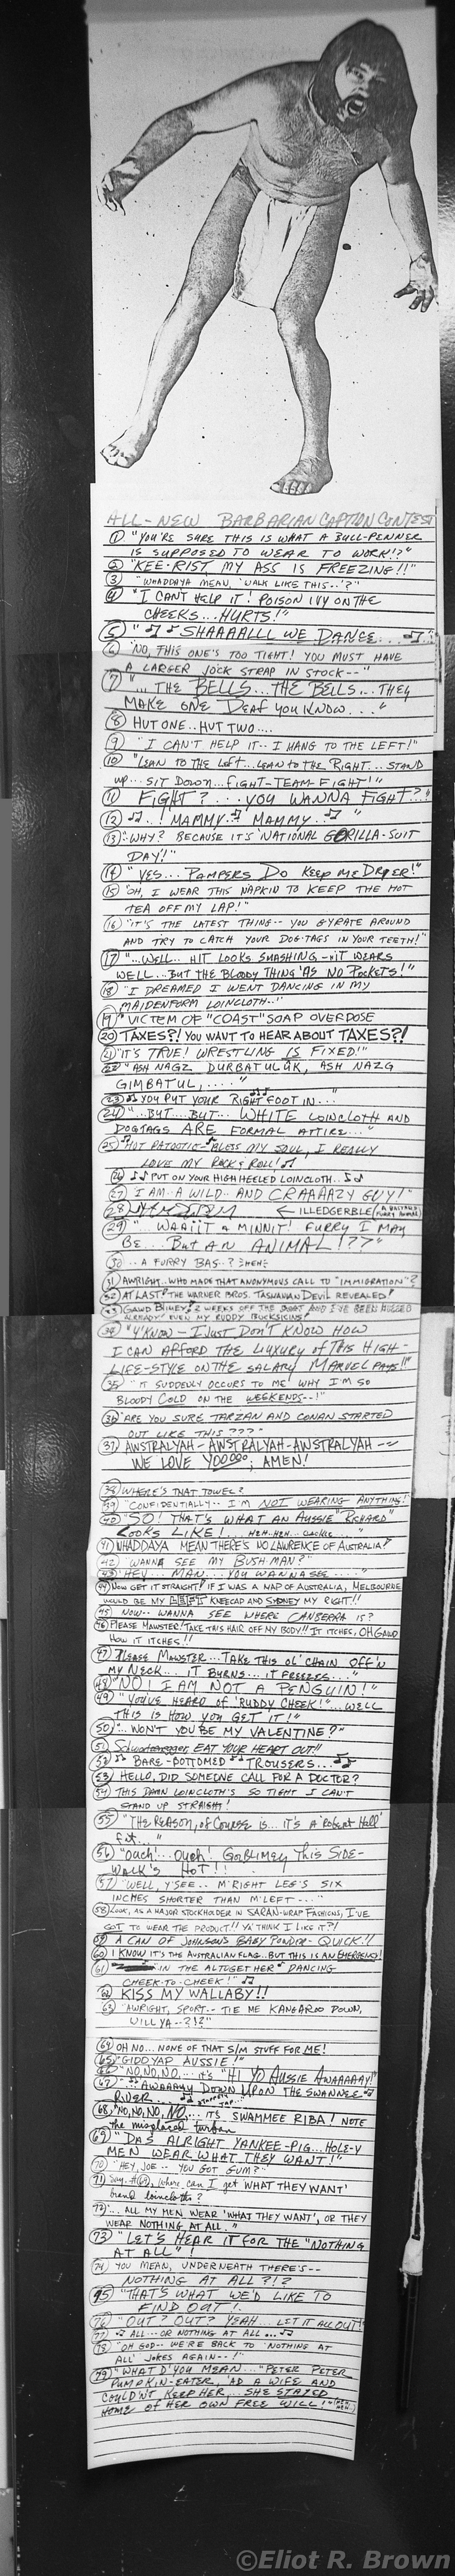 ALL-NEW BARBARIAN CAPTION CONTEST
① "YOU'RE SURE THIS IS WHAT A BULL-PENNER
IS SUPPOSED TO WEAR TO WORK!?"
② "KEE-RIST, MY ASS IS FREEZING!!"
③ "WHADDAYA MEAN, 'WALK LIKE THIS..'?"
④ "I CAN'T HELP IT! POISON IVY ON THE
CHEEKS...HURTS!"
⑤ "♫ ♪ SHAAAALLL WE DANCE... ♫"
⑥ "NO, THIS ONE'S TOO TIGHT! YOU MUST HAVE
A LARGER JOCK STRAP IN STOCK--"
⑦ "...THE BELLS...THE BELLS...THEY
MAKE ONE DEAF YOU KNOW..."
⑧ HUT ONE...HUT TWO....
⑨ "I CAN'T HELP IT.. I HANG TO THE LEFT!"
⑩ "LEAN TO THE LEFT...LEAN TO THE RIGHT...STAND
UP...SIT DOWN...FIGHT-TEAM-FIGHT!"
⑪ FIGHT?...YOU WANNA FIGHT..?"
⑫ ♫..! MAMMY ♫ MAMMY.. ♫"
⑬ "WHY? BECAUSE IT'S 'NATIONAL GORILLA-SUIT
DAY!"
⑭ "YES... PAMPERS DO KEEP ME DRYER!"
⑮ "OH, I WEAR THIS NAPKIN TO KEEP THE HOT
TEA OFF MY LAP!"
⑯ "IT'S THE LATEST THING-- YOU GYRATE AROUND
AND TRY TO CATCH YOUR DOG-TAGS IN YOUR TEETH!"
⑰ "...WELL.. HIT LOOKS SMASHING--HIT WEARS
WELL...BUT THE BLOODY THING 'AS NO POCKETS!"
⑱ "I DREAMED I WENT DANCING IN MY
MAIDENFORM LOINCLOTH.."
⑲ "VICTEM OF "COAST" SOAP OVERDOSE
⑳ TAXES?! YOU WAVT TO HEAR ABOUT TAXES?!
㉑ "IT'S TRUE! WRESTLING IS FIXED!"
㉒ "ASH NAGZ DURBATULÛK, ASH NAZG
GIMBATUL,...."
㉓ ♫ YOU PUT YOUR RIGHT FOOT IN..."
㉔ "...BUT....BUT... WHITE LOINCLOTH AND
DOGTAGS ARE FORMAL ATTIRE..."
㉕ ♫ HOT PATOOTIE-- BLESS MY SOUL, I REALLY
LOVE MY ROCK & ROLL! ♫
㉖ ♪♪ PUT ON YOUR HIGH HEELED LOINCLOTH.. ♪♪
㉗ I AM A WILD.. AND CRAAAAZY GUY!"
㉘ ← ILLEDGERBLE
㉙ "...WAAIIT A MINNIT! FURRY I MAY
BE... BUT AN ANIMAL!??"
㉚ .. A FURRY BAS..? HEH
㉛ AWRIGHT..WHO MADE THAT ANONYMOUS CALL TO "IMMIGRATION"?
㉜ AT LAST! THE WARNER BROS. TASMANIAN DEVIL REVEALED!
㉝ GAWD BLIMEY! 2 WEEKS OFF THE BOAT AND I'VE BEEN MUGGED
ALREADY EVEN MY RUDDY BUCKSKINS!
㉞ "Y'KNOW--I JUST DON'T KNOW HOW
I CAN AFFORD THE LUXURY OF THIS HIGH-
LIFE-STYLE ON THE SALARY MARVEL PAYS!!"
㉟ "IT SUDDENLY OCCURS TO ME WHY I'M SO
BLOODY COLD ON THE WEEKENDS--!"
㊱ "ARE YOU SURE TARZAN AND CONAN STARTED
OUT LIKE THIS???"
㊲ AWSTRALYAH-AWSTRALYAH-AWSTRALYAH--
WE LOVE YOOOOO, AMEN!
㊳ WHERE'S THAT TOWEL?
㊴ "CONFIDENTIALLY.. I'M NOT WEARING ANYTHING!
㊵ "SO! THAT'S WHAT AN AUSSIE "RICHARD"
LOOKS LIKE!... HEH..HEH... CACKLE...."
㊶ WHADDAYA MEAN THERE'S NO LAWRENCE OF AUSTRALIA?
㊷ "WANNA SEE MY BUSH-MAN?"
㊸ HEY... MAN... YOU WANNA SEE...."
㊹ NOW GET IT STRAIGHT! IF I WAS A MAP OF AUSTRALIA, MELBOURNE
WOULD BE MY LEFT KNEECAP AND SYDNEY MY RIGHT!!
㊺ NOW.. WANNA SEE WHERE CANBERRA IS?
㊻ PLEASE MAWSTER! TAKE THIS HAIR OFF MY BODY!! IT ITCHES, OH GAWD
HOW IT ITCHES!!
㊼ PLEASE MAWSTER...TAKE THIS OL' CHAIN OFF'N
MY NECK... IT BURNS... IT FREEZES..."
㊽ "NO! I AM NOT A PENGUIN!"
㊾ "YOU'VE HEARD OF 'RUDDY CHEEK!'...WELL
THIS IS HOW YOU GET IT!"
㊿ "..WON'T YOU BE MY VALENTINE?"
51 Schwartzenegger, EAT YOUR HEART OUT!!
52 ♪♪ BARE-BOTTOMED ♪♪ TROUSERS... ♫
53 HELLO, DID SOMEONE CALL FOR A DOCTOR?
54 THIS DAMN LOINCLOTH'S SO TIGHT I CAN'T
STAND UP STRAIGHT!
55 "THE REASON, OF COURSE IS... IT'S A 'ROBERT HALL'
FIT..."
56 "OUCH!... OUCH! GORBLIMEY THIS SIDE-
WALK'S HOT!!
57 "WELL, Y'SEE.. M'RIGHT LEG'S SIX
INCHES SHORTER THAN M'LEFT..."
58 LOOK, AS A MAJOR STOCKHOLDER IN SARAN-WRAP FASHIONS, I'VE
GOT TO WEAR THE PRODUCT!! YA THINK I LIKE IT?!
59 A CAN OF JOHNSON'S BABY POWDER-- QUICK!!
60 I KNOW IT'S THE AUSTRALIAN FLAG..BUT THIS IS AN EMERGENCY!
61 IN THE ALTOGETHER ♪ DANCING
CHEEK-TO-CHEEK!" ♫
62 KISS MY WALLABY!!
63 "AWRIGHT, SPORT-- TIE ME KANGAROO DOWN,
WILL YA--?!?"
64 OH NO... NONE OF THAT S/M STUFF FOR ME!
65 "GIDDYAP AUSSIE!"
66 "NO, NO, NO... IT'S "HI YO AUSSIE AWAAAAAY!"
67 "..AWAAAAY DOWN UPON THE SWANNEE
RIVER...
68 "NO, NO, NO, NO... IT'S SWAMMEE RIBA! NOTE
the misplaced turban
69 "DA'S ALRIGHT YANKEE-PIG...HOLE-Y
MEN WEAR WHAT THEY WANT!"
70 "HEY, JOE -- YOU GOT GUM?"
71 Say, #69, where can I get 'WHAT THEY WANT'
brand loincloths?
72 "... ALL MY MEN WEAR 'WHAT THEY WANT', OR THEY
WEAR NOTHING AT ALL."
73 "LET'S HEAR IT FOR THE "NOTHING
AT ALL"!
74 YOU MEAN, UNDERNEATH THERE'S--
NOTHING AT ALL?!?
75 "THAT'S WHAT WE'D LIKE TO
FIND OUT!
76 "OUT? OUT? YEAH... LET IT ALL OUT!
77 ♫ ALL... OR NOTHING AT ALL... ♫
78 "OH GOD-- WE'RE BACK TO 'NOTHING AT
ALL' JOKES AGAIN--!"
79 "WHAT D'YOU MEAN... "PETER PETER
PUMPKIN-EATER, 'AD A WIFE AND
COULDN'T KEEP HER... SHE STAYED
HOME OF HER OWN FREE WILL!"
©Eliot R. Brown